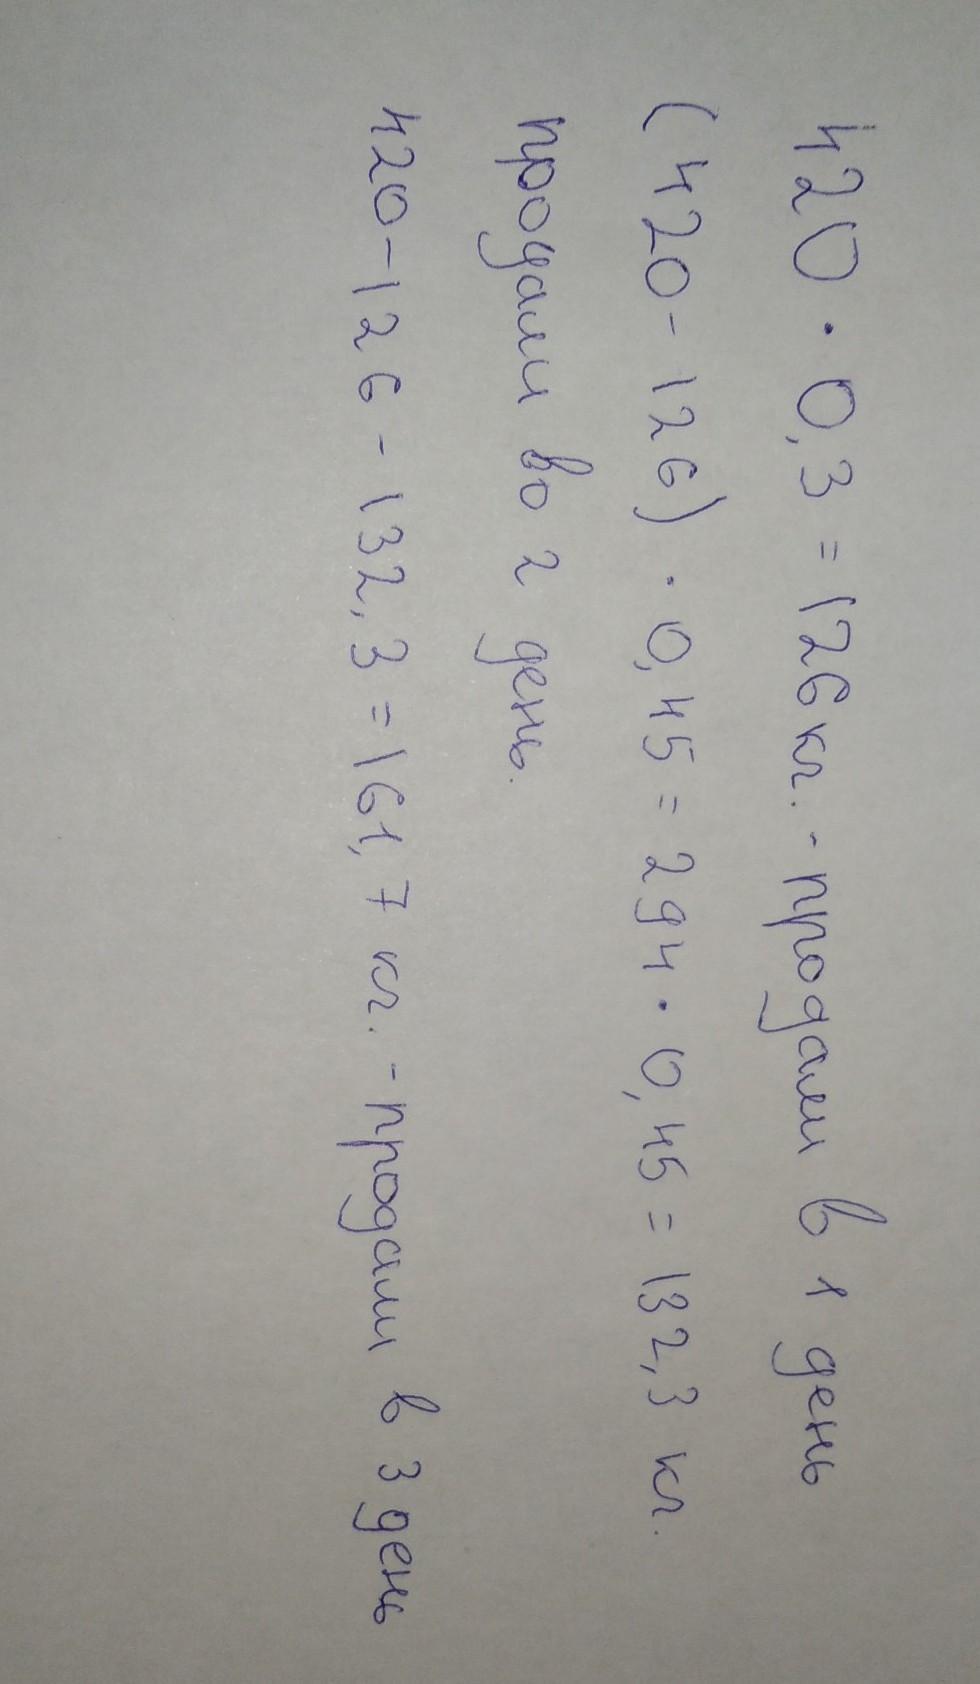 420 · 0,3 = 126 кг. - продали в 1 день
(420 - 126) · 0,45 = 294 · 0,45 = 132,3 кг.
продали во 2 день.
420 - 126 - 132,3 = 161,7 кг. - продали в 3 день